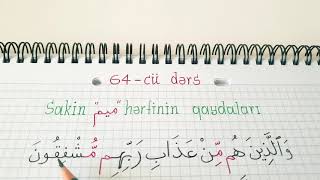 64-cü dərs
Sakin "مِيمْ" hərfinin qaydaları
وَالَّذِينَ هُم مِّنْ عَذَابِ رَبِّهِم مُّشْفِقُونَ